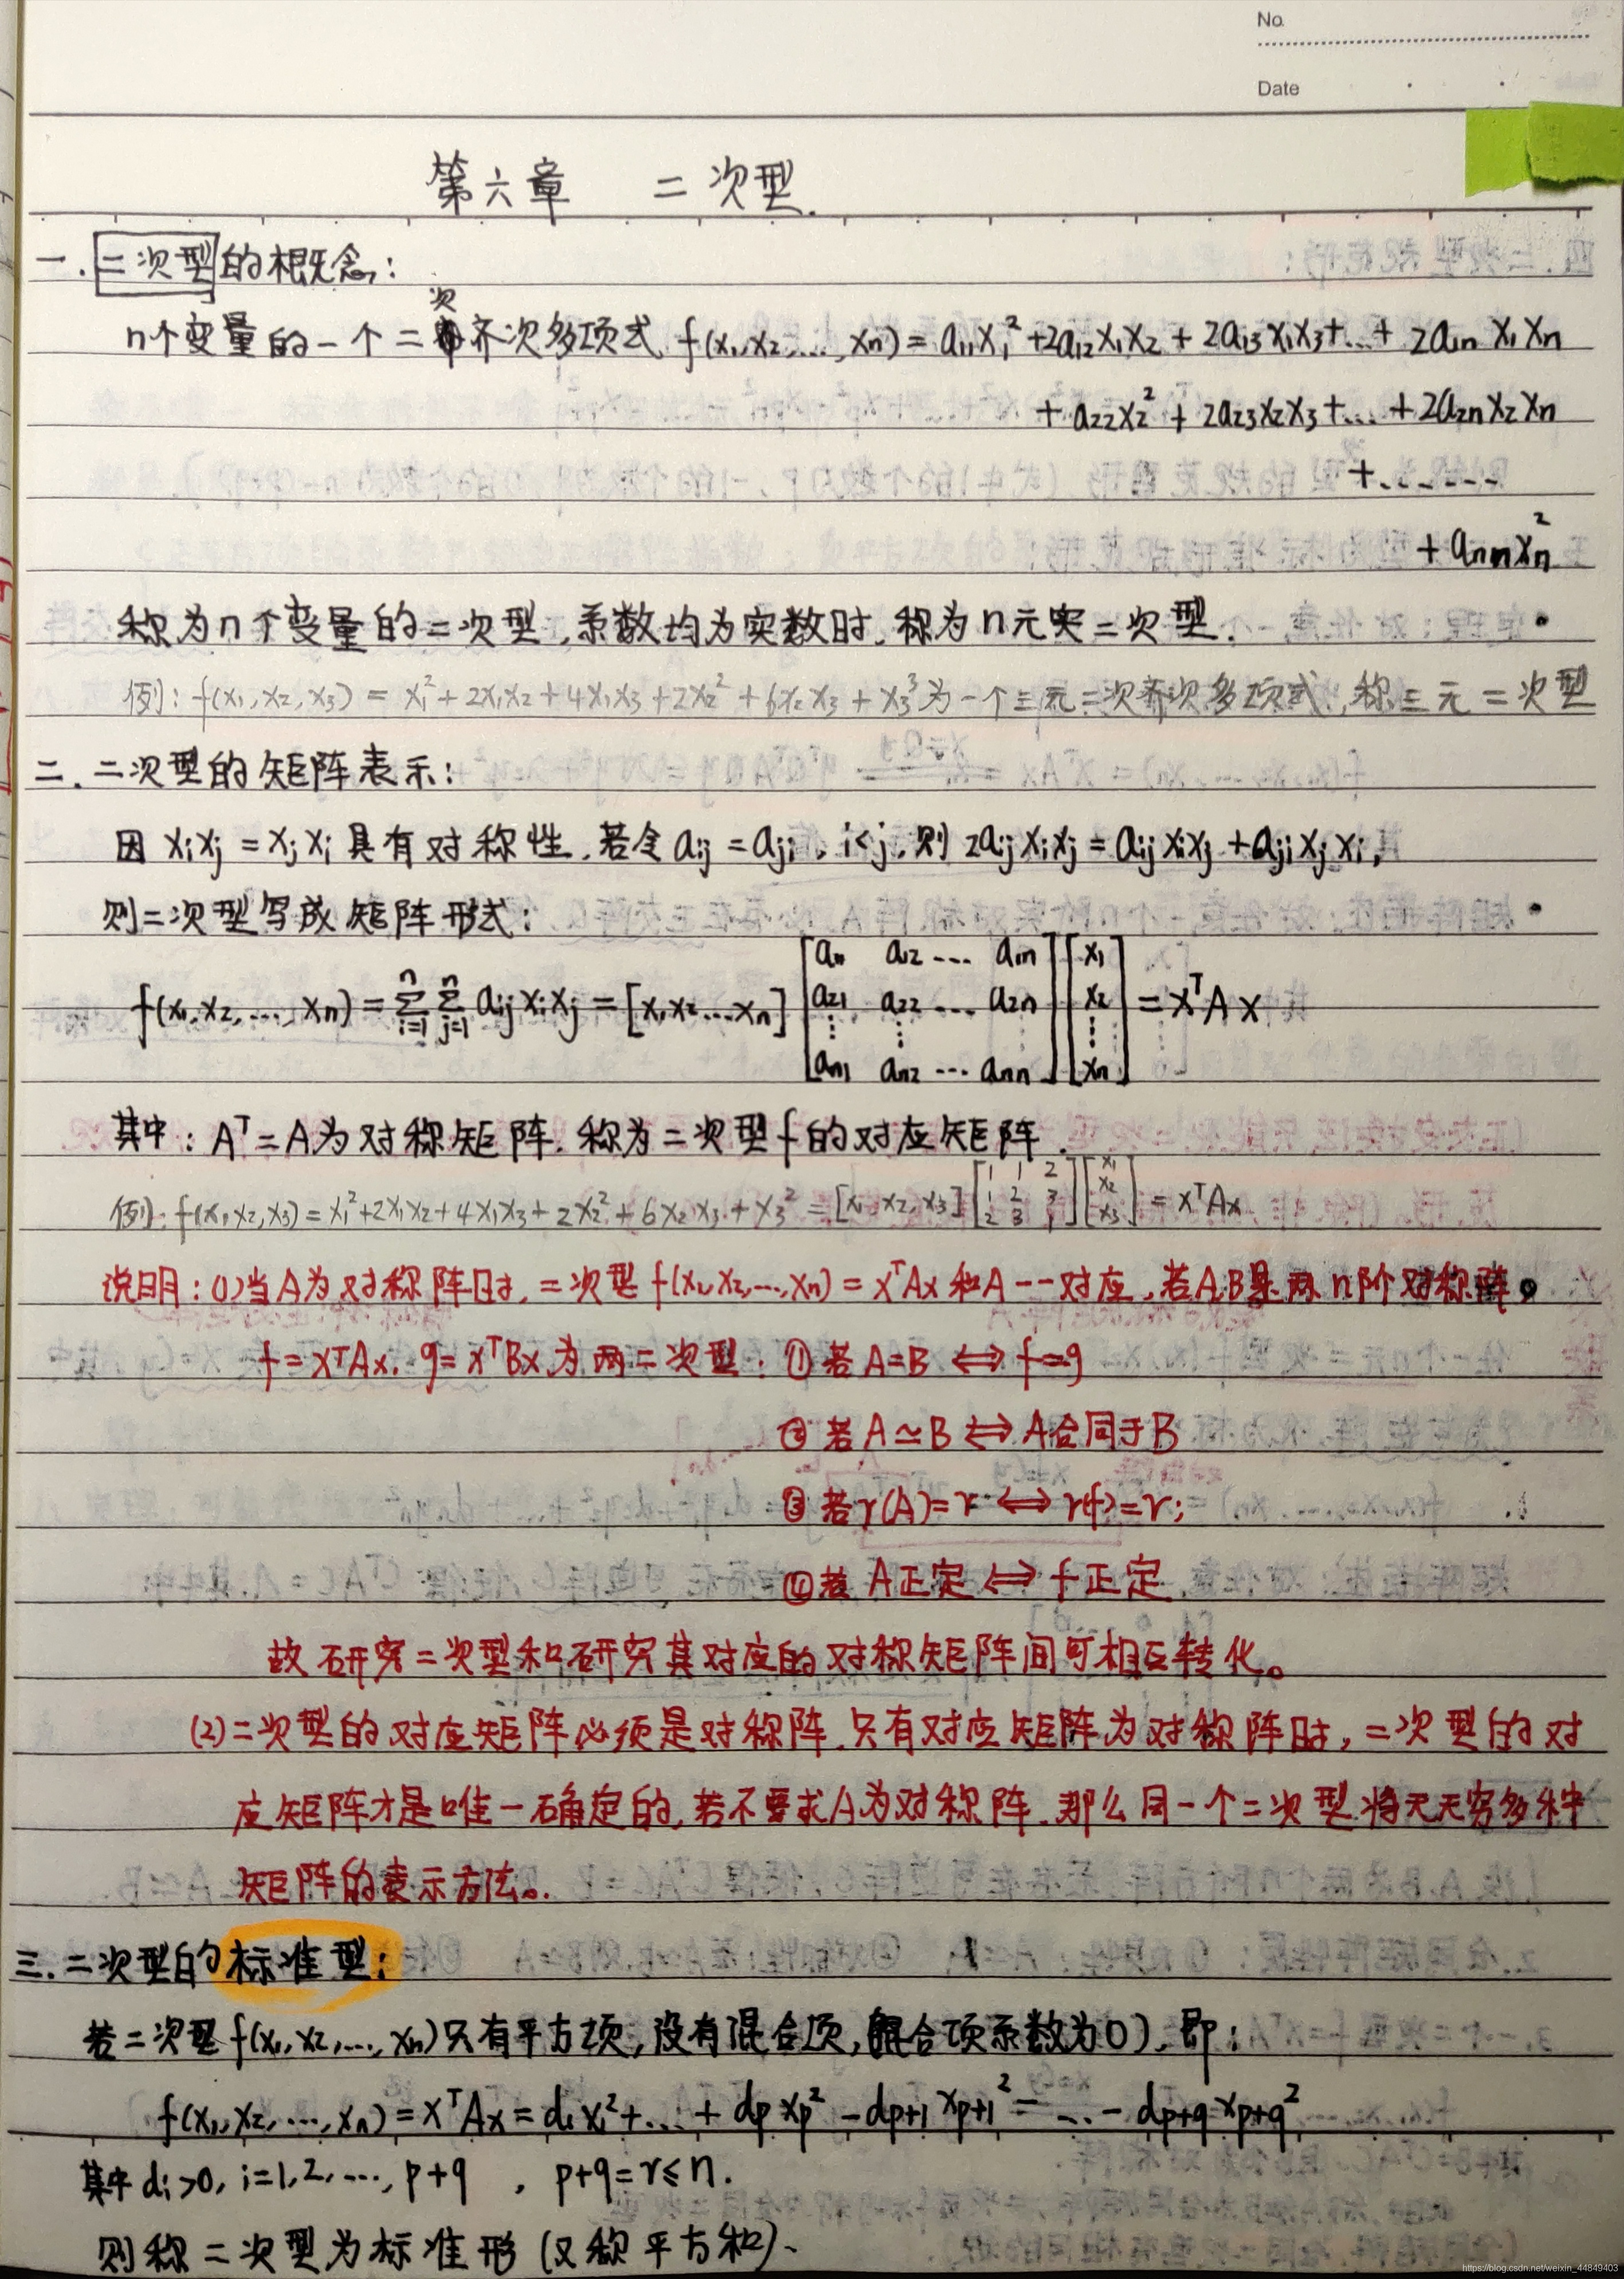 No.
Date
第六章 二次型.
一.二次型的概念:
n个变量的一个二次齐次多项式 f(x₁,x₂,...,xₙ) = a₁₁x₁² + 2a₁₂x₁x₂ + 2a₁₃x₁x₃ + ... + 2a₁ₙx₁xₙ
+ a₂₂x₂² + 2a₂₃x₂x₃ + ... + 2a₂ₙx₂xₙ
+ .......
+ aₙₙxₙ²
称为n个变量的二次型,系数均为实数时,称为n元实二次型.
例: f(x₁,x₂,x₃) = x₁² + 2x₁x₂ + 4x₁x₃ + 2x₂² + 6x₂x₃ + x₃³ 为一个三元二次齐次多项式,称三元二次型
二.二次型的矩阵表示:
因 xᵢxⱼ = xⱼxᵢ 具有对称性.若令 aᵢⱼ = aⱼᵢ, i<j,则 2aᵢⱼxᵢxⱼ = aᵢⱼxᵢxⱼ + aⱼᵢxⱼxᵢ,
则二次型写成矩阵形式:
f(x₁,x₂,...,xₙ) = Σⁿᵢ₌₁ Σⁿⱼ₌₁ aᵢⱼxᵢxⱼ = [x₁,x₂...xₙ] [a₁₁ a₁₂ ... a₁ₙ; a₂₁ a₂₂ ... a₂ₙ; ⋮ ⋮ ⋮; aₙ₁ aₙ₂ ... aₙₙ] [x₁; x₂; ⋮; xₙ] = xᵀAx
其中: Aᵀ=A为对称矩阵.称为二次型f的对应矩阵.
例: f(x₁,x₂,x₃) = x₁² + 2x₁x₂ + 4x₁x₃ + 2x₂² + 6x₂x₃ + x₃² = [x₁,x₂,x₃] [1 1 2; 1 2 3; 2 3 1] [x₁; x₂; x₃] = xᵀAx
说明: (1)当A为对称阵时,二次型 f(x₁,x₂,...,xₙ) = xᵀAx 和A一一对应,若A,B是两n阶对称阵。
f = xᵀAx. g = xᵀBx 为两二次型: ①若 A=B ⟺ f=g
②若 A≃B ⟺ A合同于B
③若 r(A)=r ⟺ r(f)=r;
④若 A正定 ⟺ f正定
故研究二次型和研究其对应的对称矩阵间可相互转化。
(2)二次型的对应矩阵必须是对称阵.只有对应矩阵为对称阵时,二次型的对
应矩阵才是唯一确定的,若不要求A为对称阵.那么同一个二次型将无无穷多种
矩阵的表示方法。
三.二次型的标准型:
若二次型 f(x₁,x₂,...,xₙ)只有平方项,没有混合项,(混合项系数为0),即:
f(x₁,x₂,...,xₙ) = xᵀAx = d₁x₁² + ... + dₚxₚ² - dₚ₊₁xₚ₊₁² - ... - dₚ₊qxₚ₊q²
其中 dᵢ>0, i=1,2,...,p+q , p+q=r≤n.
则称二次型为标准形(又称平方和)、
https://blog.csdn.net/weixin_44849403